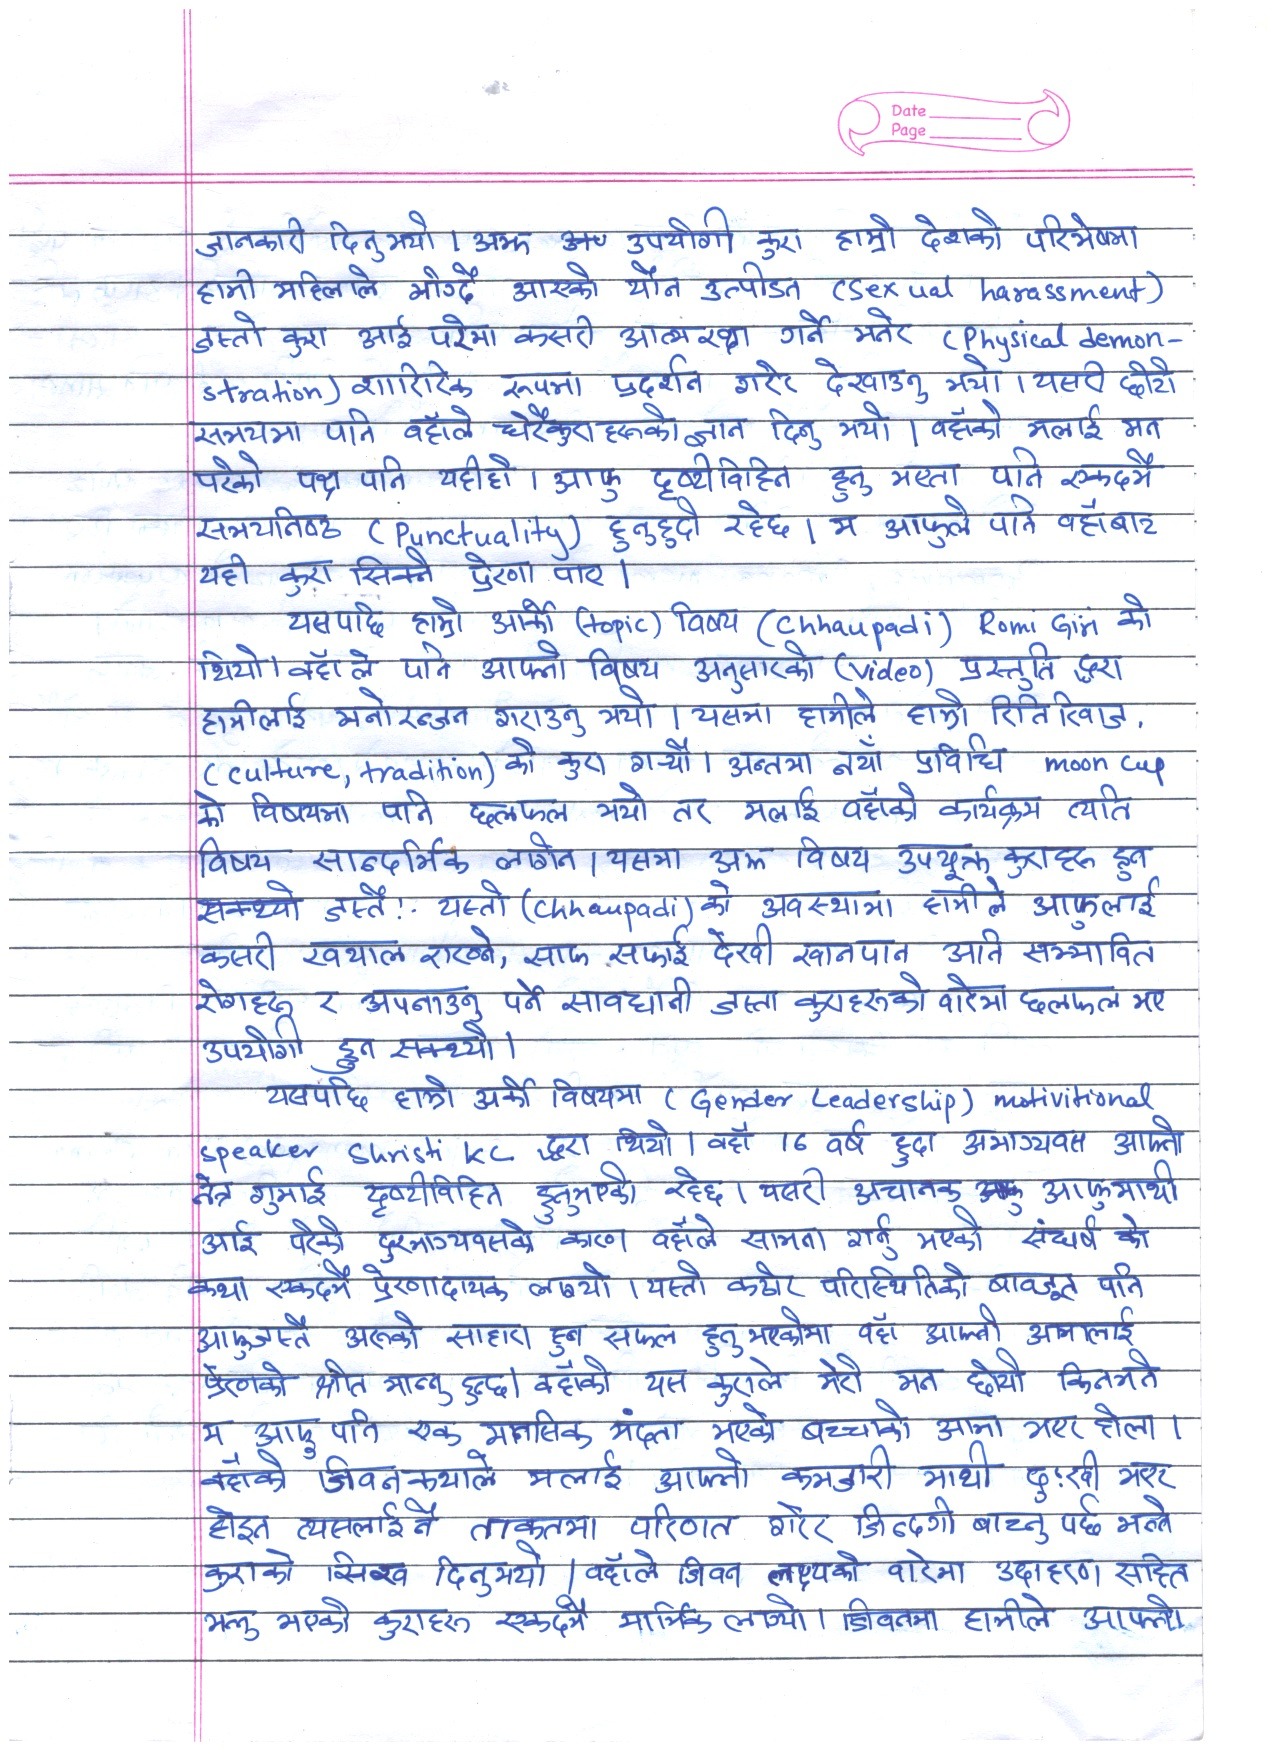 Date
Page
जानकारी दिनु भयो । अझ उपयोगी कुरा हाम्रो देशको परिभेषमा
हामी महिलाले भोग्दै आएको यौन उत्पीडन (Sexual harassment)
जस्तो कुरा आई परेमा कसरी आत्म रक्षा गर्ने भनेर (Physical demon-
stration) शारिरिक रूपमा प्रदर्शन गरेर देखाउनु भयो । यसरी छोटो
समयमा पनि वहाँले धेरैकुराहरूको ज्ञान दिनु भयो । वहाँको मलाई मन
परेको पक्ष पनि यहीहो । आफु दृष्टीविहिन हुनु भएता पनि एकदमै
समयनिष्ठ (Punctuality) हुनुहुदो रहेछ । म आफुले पनि वहाँबाट
यही कुरा सिक्ने प्रेरणा पाए ।
यसपछि हाम्रो अर्को (topic) विषय (Chhaupadi) Romi Giri को
थियो । वहाँले पनि आफ्नो विषय अनुसारको (Video) प्रस्तुति द्वारा
हामीलाई मनोरन्जन गराउनु भयो । यसमा हामीले हाम्रो रितिरिवाज,
(culture, tradition) को कुरा गर्‍यौ । अन्तमा नयाँ प्रविधि moon cup
को विषयमा पनि छलफल भयो तर मलाई वहाँको कार्यक्रम त्यति
विषय सान्दर्भिक लागेन । यसमा अझ विषय उपयूक्त कुराहरू हुन
सक्थ्यो जस्तै:- यस्तो (Chhaupadi) को अवस्थामा हामीले आफुलाई
कसरी ख्याल राख्ने, साफ सफाई देखी खानपान अनि सम्भावित
रोगहरू र अपनाउनु पर्ने सावधानी जस्ता कुराहरूको वारेमा छलफल भए
उपयोगी हुन सक्थ्यो ।
यसपछि हाम्रो अर्को विषयमा (Gender Leadership) motivitional
speaker Shristi KC द्वारा थियो । वहाँ 16 वर्ष हुदा अभाग्यवस आफ्नो
नेत्र गुमाई दृष्टीविहिन हुनुभएको रहेछ । यसरी अचानक आफुमाथी
आई परेको दुरभाग्यवसको कारण वहाँले सामना गर्नु भएको संघर्ष को
कथा एकदमै प्रेरणादायक लाग्यो । यस्तो कठोर परिस्थितिको बावजूत पनि
आफुजस्तै अरूको साहारा हुन सफल हुनु भएकोमा वहाँ आफ्नो आमालाई
प्रेरणको श्रोत मान्नु हुन्छ । वहाँको यस कुराले मेरो मन छोयो किनभने
म आफु पनि एक मानसिक मंदता भएको बच्चाको आमा भएर होला ।
वहाँको जिवनकथाले मलाई आफ्नो कमजोरी माथी दु:खी भएर
होइन त्यसलाई नै ताकतमा परिणत गरेर जिन्दगी बाच्नु पर्छ भन्ने
कुराको सिख दिनुभयो । वहाँले जिवन लक्ष्यको वारेमा उदाहरण सहित
भन्नु भएको कुराहरू एकदमै मार्मिक लाग्यो । जिवनमा हामीले आफ्नो